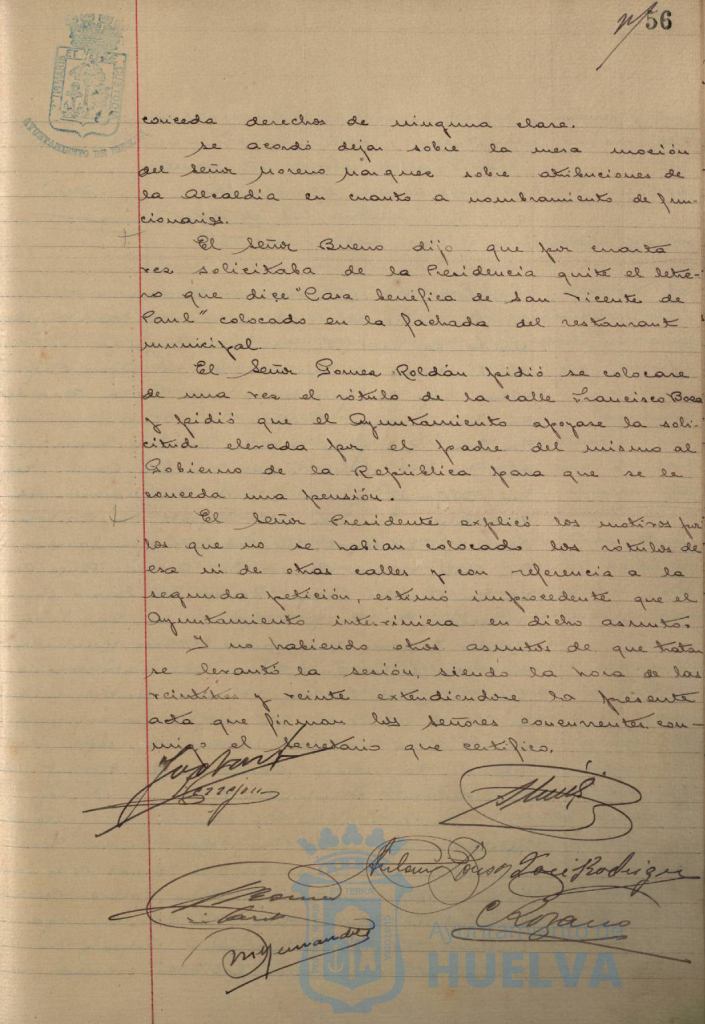 56
conceda derechos de ninguna clase.
Se acordó dejar sobre la mesa moción
del Señor Moreno Márquez sobre atribuciones de
la Alcaldía en cuanto a nombramiento de fun-
cionarios.
El Señor Bueno dijo que por cuarta
vez solicitaba de la Presidencia quite el letre-
ro que dice "Casa benéfica de San Vicente de
Paul" colocado en la fachada del restaurant
municipal.
El Señor Gomez Roldán pidió se colocase
de una vez el rótulo de la calle Francisco Boza
y pidió que el Ayuntamiento apoyase la soli-
citud elevada por el padre del mismo al
Gobierno de la República para que se le
conceda una pensión.
El Señor Presidente explicó los motivos por
los que no se habían colocado los rótulos de
esa ni de otras calles y con referencia a la
segunda petición, estimó improcedente que el
Ayuntamiento interviniera en dicho asunto.
Y no habiendo otros asuntos de que tratar
se levantó la sesión, siendo la hora de las
y veinte extendiendose la presente
acta que firman los señores concurrentes con-
migo el Secretario que certifico.
José Rodriguez
Ayuntamiento de
HUELVA